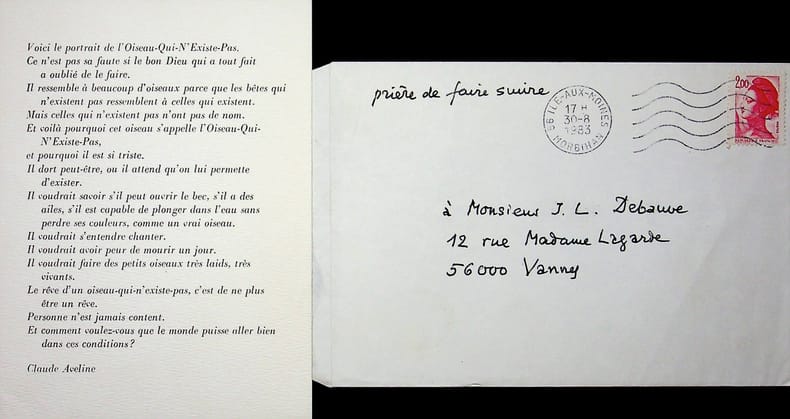 Voici le portrait de l'Oiseau-Qui-N'Existe-Pas.
Ce n'est pas sa faute si le bon Dieu qui a tout fait
a oublié de le faire.
Il ressemble à beaucoup d'oiseaux parce que les bêtes qui
n'existent pas ressemblent à celles qui existent.
Mais celles qui n'existent pas n'ont pas de nom.
Et voilà pourquoi cet oiseau s'appelle l'Oiseau-Qui-
N'Existe-Pas,
et pourquoi il est si triste.
Il dort peut-être, ou il attend qu'on lui permette
d'exister.
Il voudrait savoir s'il peut ouvrir le bec, s'il a des
ailes, s'il est capable de plonger dans l'eau sans
perdre ses couleurs, comme un vrai oiseau.
Il voudrait s'entendre chanter.
Il voudrait avoir peur de mourir un jour.
Il voudrait faire des petits oiseaux très laids, très
vivants.
Le rêve d'un oiseau-qui-n'existe-pas, c'est de ne plus
être un rêve.
Personne n'est jamais content.
Et comment voulez-vous que le monde puisse aller bien
dans ces conditions?
Claude Aveline
prière de faire suivre
56 ILE-AUX-MOINES
17 H
30-8
1983
MORBIHAN
2,00
à Monsieur J. L. Debauve
12 rue Madame Lagarde
56000 Vannes